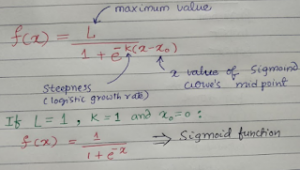 maximum value
f(x) = L / 1 + e^-k(x-x₀)
Steepness
(logistic growth rate)
x value of Sigmoid
curve's mid point
If L = 1 , k = 1 and x₀ = 0 :
f(x) = 1 / 1 + e^-x ⇒ Sigmoid function